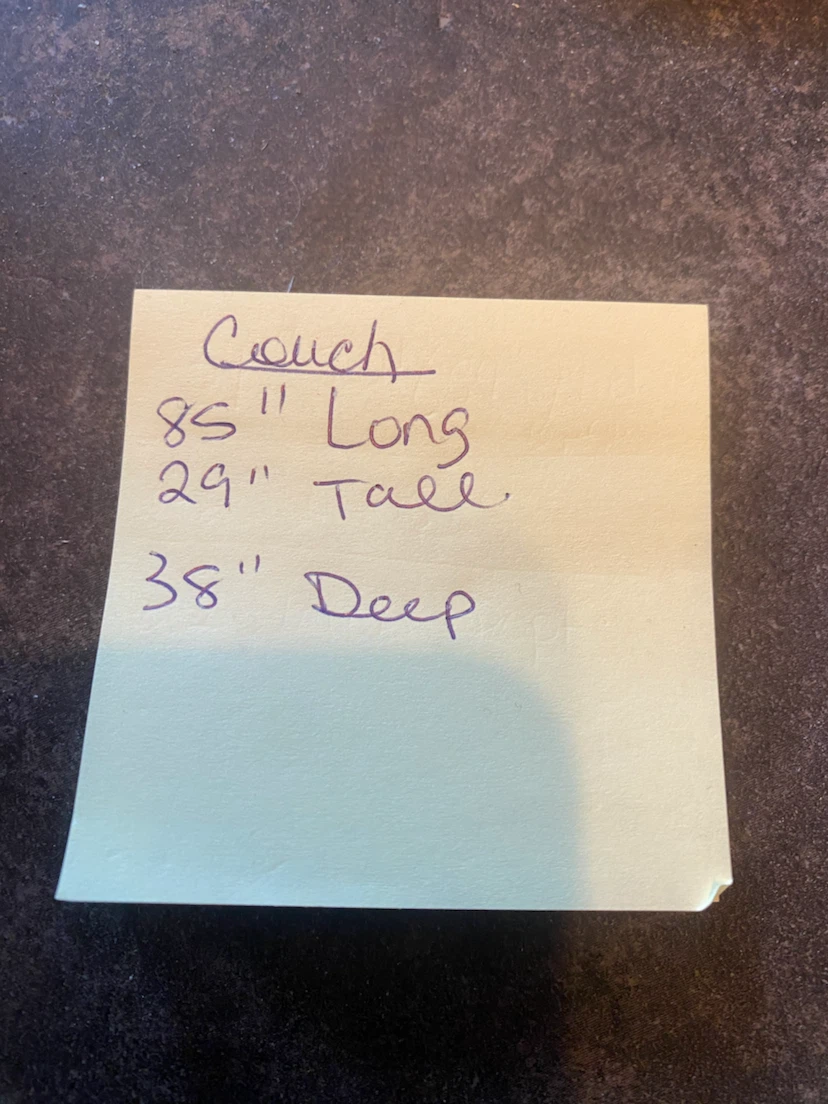 Couch
85" Long
29" Tall
38" Deep